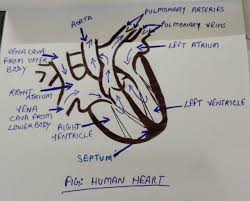 PULMONARY ARTERIES
AORTA
PULMONARY VEINS
VENA CAVA
FROM UPPER
BODY
LEFT ATRIUM
RIGHT
ATRIUM
VENA
CAVA FROM
LOWER BODY
RIGHT
VENTRICLE
LEFT VENTRICLE
SEPTUM
FIG: HUMAN HEART